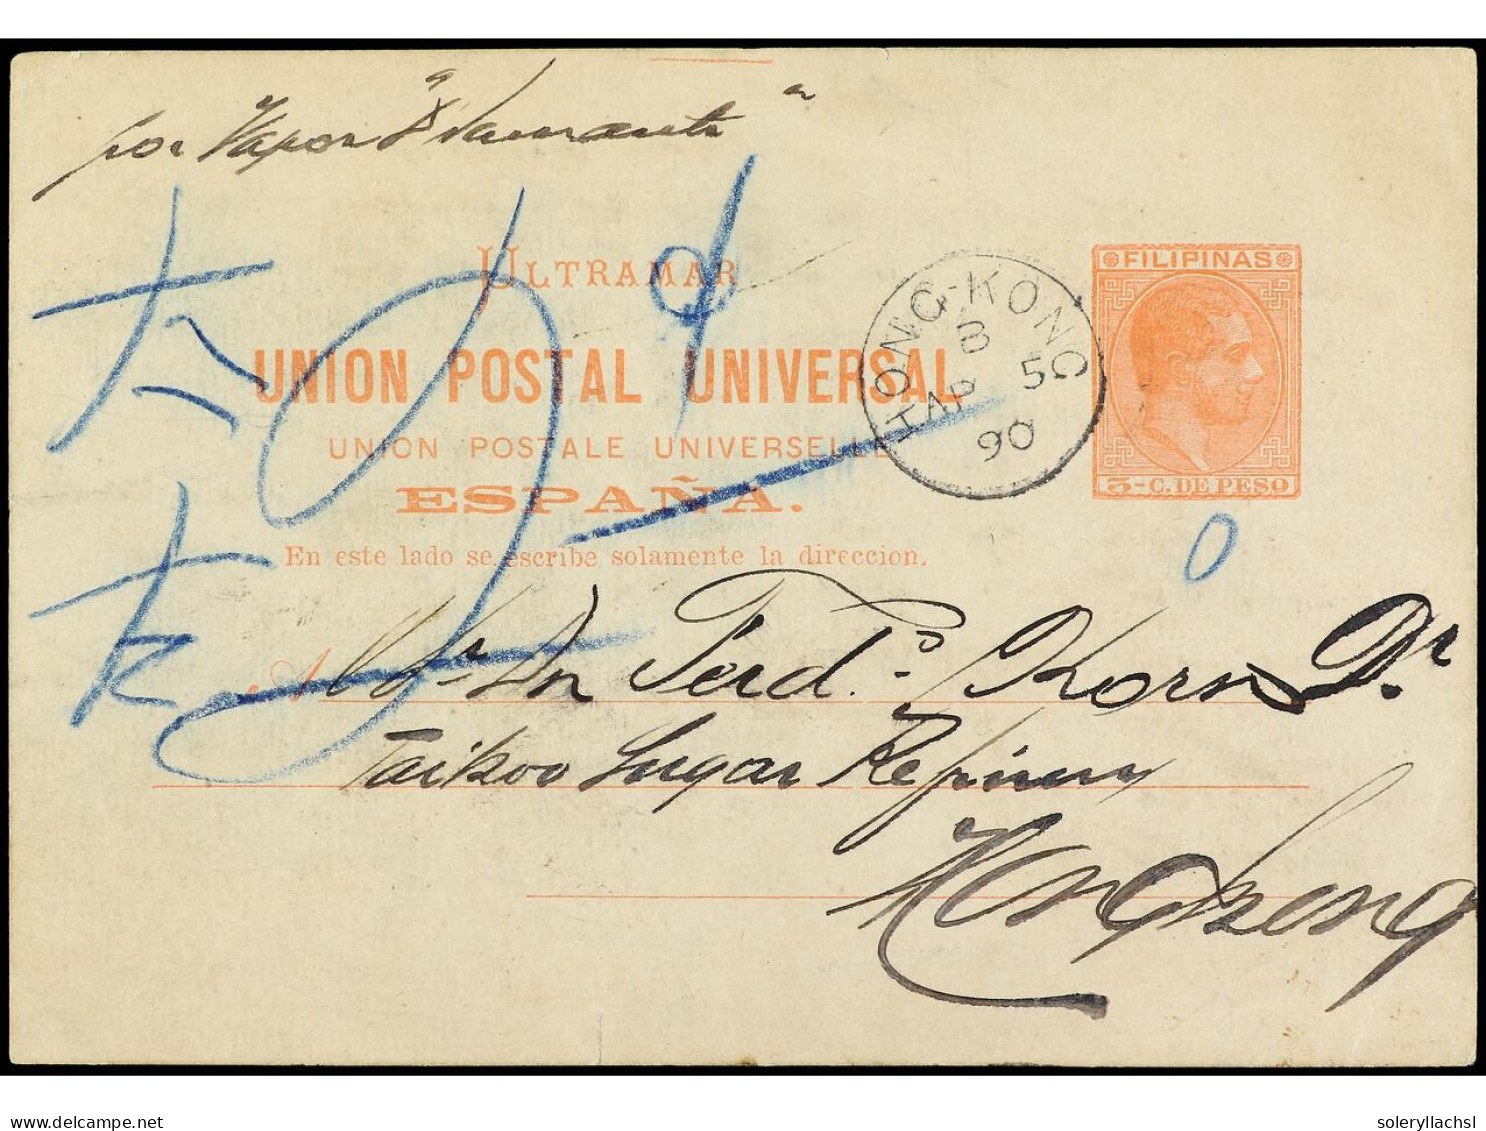 por Vapor "Diamante"
ULTRAMAR
UNION POSTAL UNIVERSAL
UNION POSTALE UNIVERSELLE
ESPAÑA.
En este lado se escribe solamente la direccion.
FILIPINAS
3-C. DE PESO
HONG-KONG
B
AP 5
90
A Mr Dn Ferd. Korn Dr.
Taikoo Sugar Refinery
Hongkong
delcampe.net
soleryllachsl